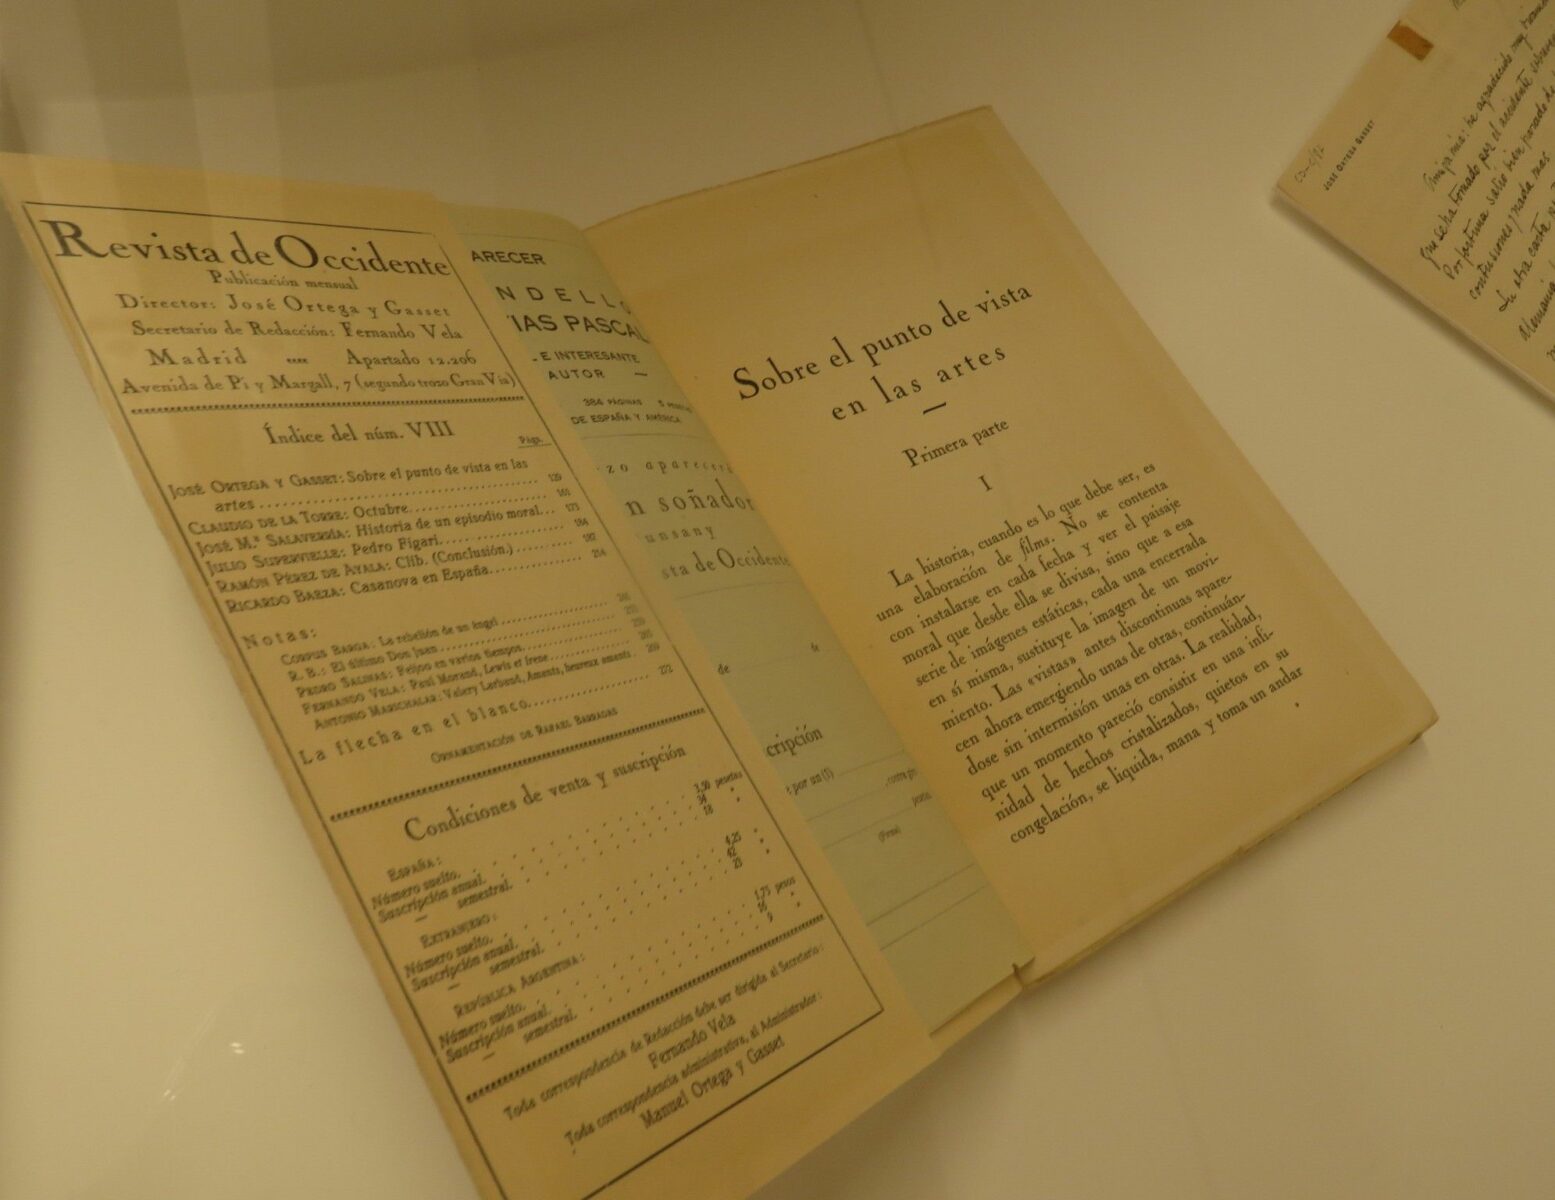 Revista de Occidente
Publicación mensual
Director: José Ortega y Gasset
Secretario de Redacción: Fernando Vela
Madrid Apartado 12.206
Avenida de Pi y Margall, 7 (segundo trozo Gran Vía)
Índice del núm. VIII
Págs.
JOSÉ ORTEGA Y GASSET: Sobre el punto de vista en las
artes 129
CLAUDIO DE LA TORRE: Octubre 161
JOSÉ M.ª SALAVERRÍA: Historia de un episodio moral 173
JULIO SUPERVIELLE: Pedro Figari 184
RAMÓN PÉREZ DE AYALA: Clib. (Conclusión.)
RICARDO BAEZA: Casanova en España
Notas:
CORPUS BARGA: La rebelión de un ángel
R. B.: El último Don Juan
PEDRO SALINAS: Feijoo en varios tiempos
FERNANDO VELA: Paul Morand, Lewis et Irène
ANTONIO MARICHALAR: Valery Larbaud, Amants, heureux amants
La flecha en el blanco 272
ORNAMENTACIÓN DE RAFAEL BARRADAS
Condiciones de venta y suscripción
ESPAÑA:
Número suelto. 3,50 pesetas
Suscripción anual. »
— semestral. 18 »
EXTRANJERO:
Número suelto. 4,25 »
Suscripción anual. 42 »
— semestral. »
REPÚBLICA ARGENTINA:
Número suelto. 1,75 pesos
Suscripción anual. »
— semestral. 9 »
Toda correspondencia de Redacción debe ser dirigida al Secretario:
Fernando Vela
Toda correspondencia administrativa, al Administrador:
Manuel Ortega y Gasset
ARECER
NDELLO
IAS PASCAL
E INTERESANTE
AUTOR —
384 PÁGINAS 5 PESETAS
DE ESPAÑA Y AMÉRICA
zo aparecerá
n soñador
unsany
sta de Occidente
de
de
cripción
e por un (1)
(Firma)
Sobre el punto de vista
en las artes
—
Primera parte
I
La historia, cuando es lo que debe ser, es
una elaboración de films. No se contenta
con instalarse en cada fecha y ver el paisaje
moral que desde ella se divisa, sino que a esa
serie de imágenes estáticas, cada una encerrada
en sí misma, sustituye la imagen de un movi-
miento. Las «vistas» antes discontinuas apare-
cen ahora emergiendo unas de otras, continuán-
dose sin intermisión unas en otras. La realidad,
que un momento pareció consistir en una infi-
nidad de hechos cristalizados, quietos en su
congelación, se liquida, mana y toma un andar
JOSÉ ORTEGA GASSET
Amiga mía: he agradecido muy
que se ha tomado por el accidente
Por fortuna salió bien parado de
contusiones y nada mas
Su otra carta
Alemania